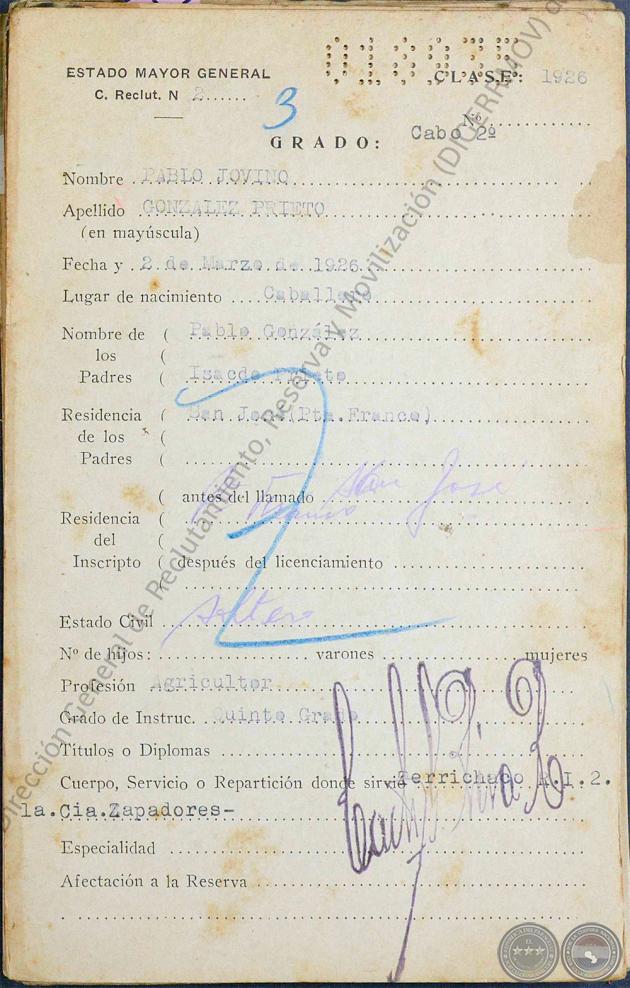 ESTADO MAYOR GENERAL
C. Reclut. N 2......
CLASE: 1926
3
Nº
GRADO: Cabo 2º
Nombre PABLO JOVINO
Apellido GONZALEZ PRIETO
(en mayúscula)
Fecha y 2 de Marzo de 1926
Lugar de nacimiento Caballero
Nombre de ( Pablo González
los (
Padres ( Prieto
Residencia ( San José (Pto. Franco)
de los (
Padres (
( antes del llamado San José
Residencia ( Franco
del (
Inscripto ( después del licenciamiento
(
Estado Civil soltero
Nº de hijos: varones mujeres
Profesión Agricultor
Grado de Instruc. Quinto Grado
Títulos o Diplomas
Cuerpo, Servicio o Repartición donde sirvió R.I.2.
1a.Cia.Zapadores-
Especialidad
Afectación a la Reserva
2
Dirección General de Reclutamiento, Reserva y Movilización (DIGERRMOV)